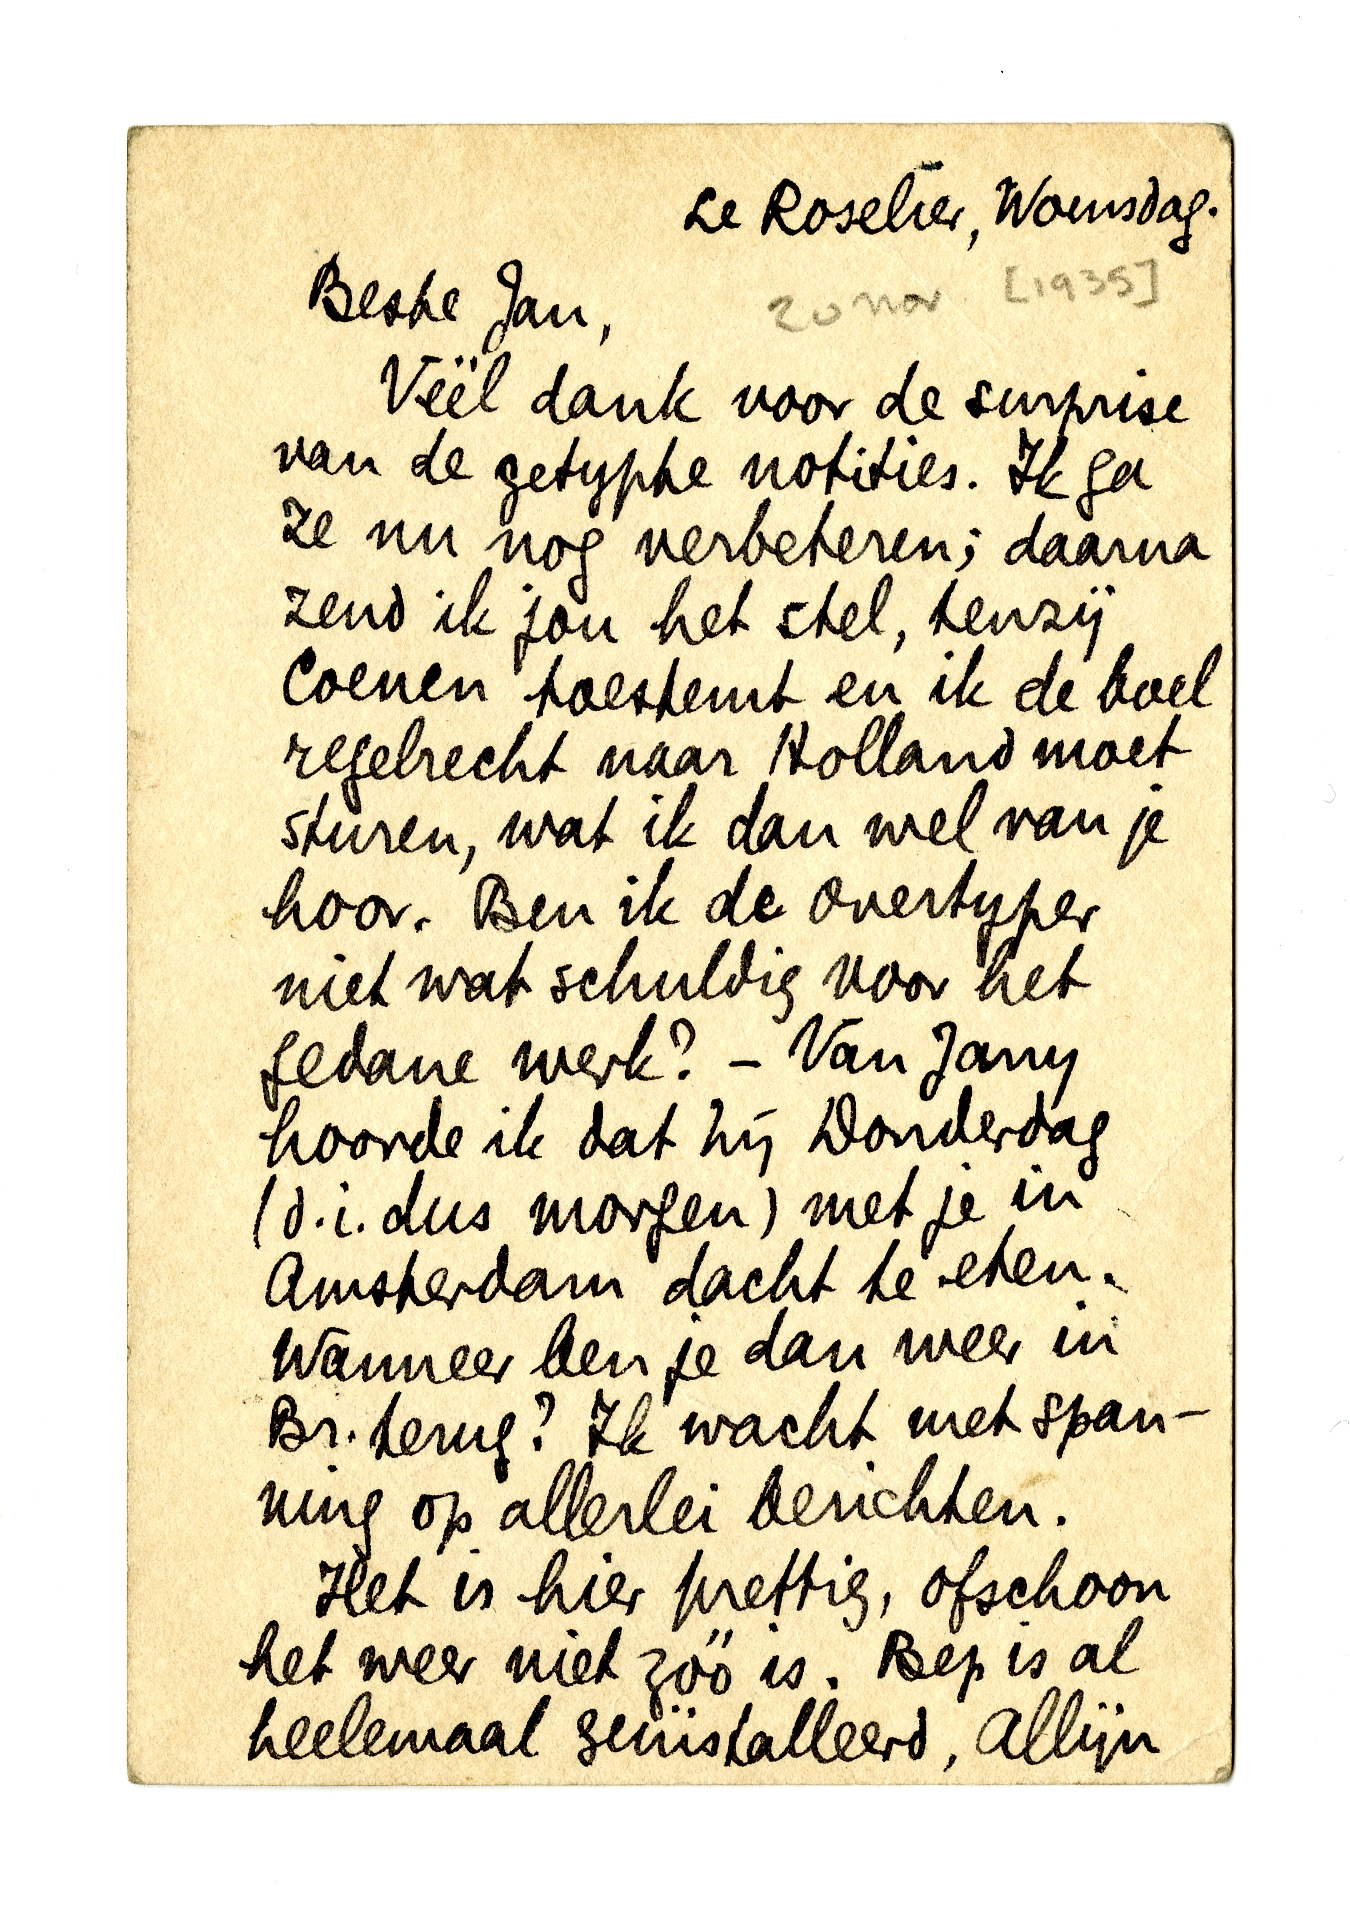 Le Roselier, Woensdag.
20 nov [1935]
Beste Jan,
Véél dank voor de surprise
van de getypte notities. Ik ga
ze nu nog verbeteren; daarna
zend ik jou het stel, tenzij
Coenen toestemt en ik de boel
regelrecht naar Holland moet
sturen, wat ik dan wel van je
hoor. Ben ik de overtyper
niet wat schuldig voor het
gedane werk? – Van Jany
hoorde ik dat hij Donderdag
(d.i. dus morgen) met je in
Amsterdam dacht te eten.
Wanneer ben je dan weer in
Br. terug? Ik wacht met span-
ning op allerlei berichten.
Het is hier prettig, ofschoon
het weer niet zóó is. Bep is al
heelemaal geïnstalleerd, Alijn